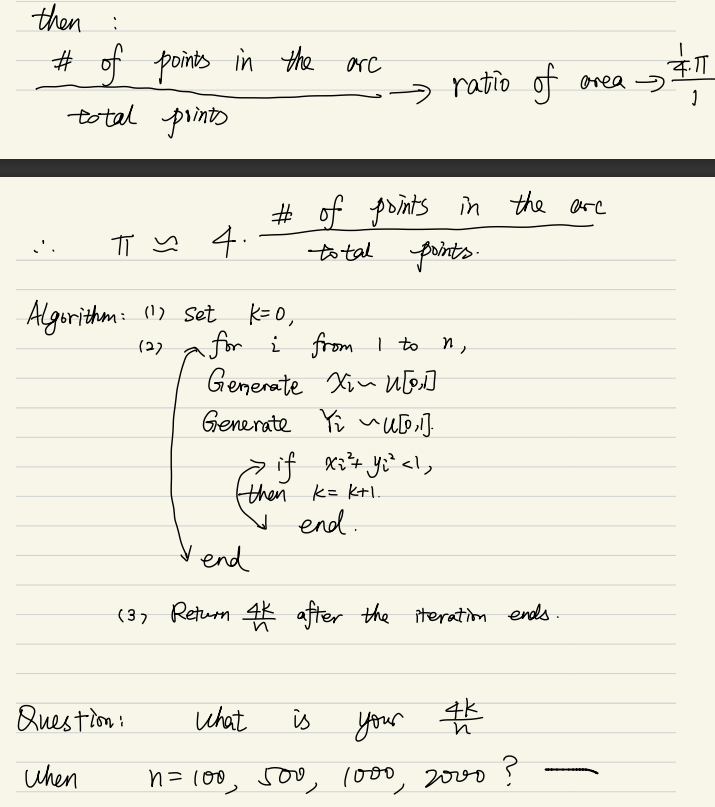 then :
# of points in the arc / total points → ratio of area → 1/4·π / 1
∴ π ≈ 4· # of points in the arc / total points.
Algorithm: (1) set k=0,
(2) for i from 1 to n,
Generate Xi ~ U[0,1]
Generate Yi ~ U[0,1].
if xi²+ yi² <1,
then k= k+1.
end.
end
(3) Return 4k/n after the iteration ends.
Question: What is your 4k/n
When n=100, 500, 1000, 2000 ? —